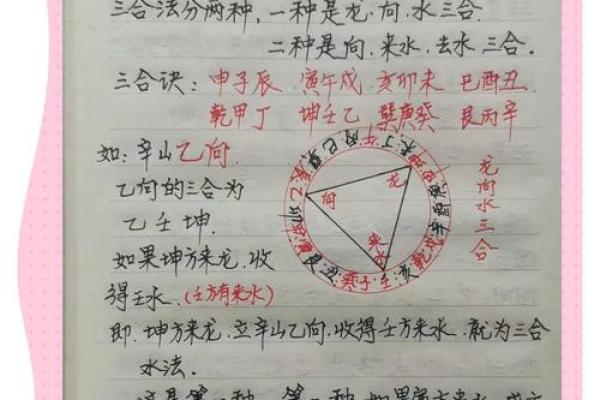 三合法分两种,一种是龙.向.水三合.
二种是向.来水.去水.三合.
三合诀: 申子辰 寅午戌 亥卯未 巳酉丑
乾甲丁 坤壬乙 巽庚癸 艮丙辛
如: 辛山乙向.
乙向的三合为
乙壬坤.
如果坤方来龙.收
得壬水.(壬方有来水)
即.坤方来龙.立辛山乙向.收得壬方来水.就为三合
水法.
龙
向
来水
龙向水三合
癸子壬亥乾戌辛